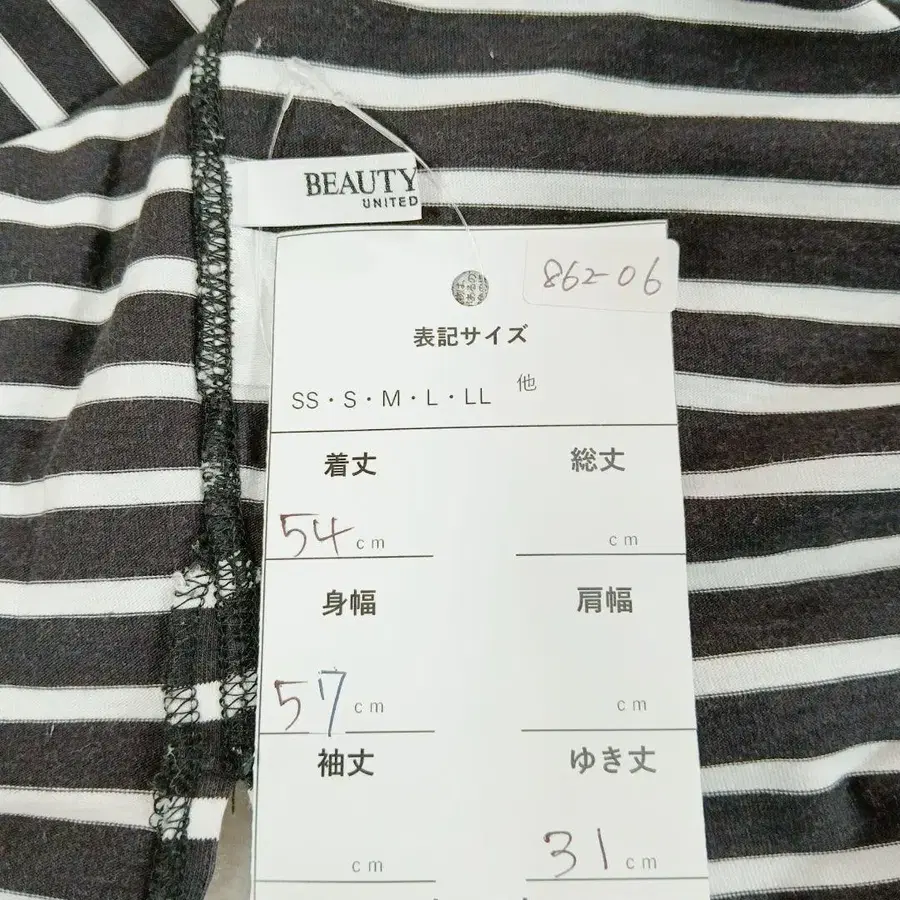 BEAUTY
UNITED
862-06
表記サイズ
SS・S・M・L・LL 他
着丈 総丈
54 cm cm
身幅 肩幅
57 cm cm
袖丈 ゆき丈
cm 31 cm